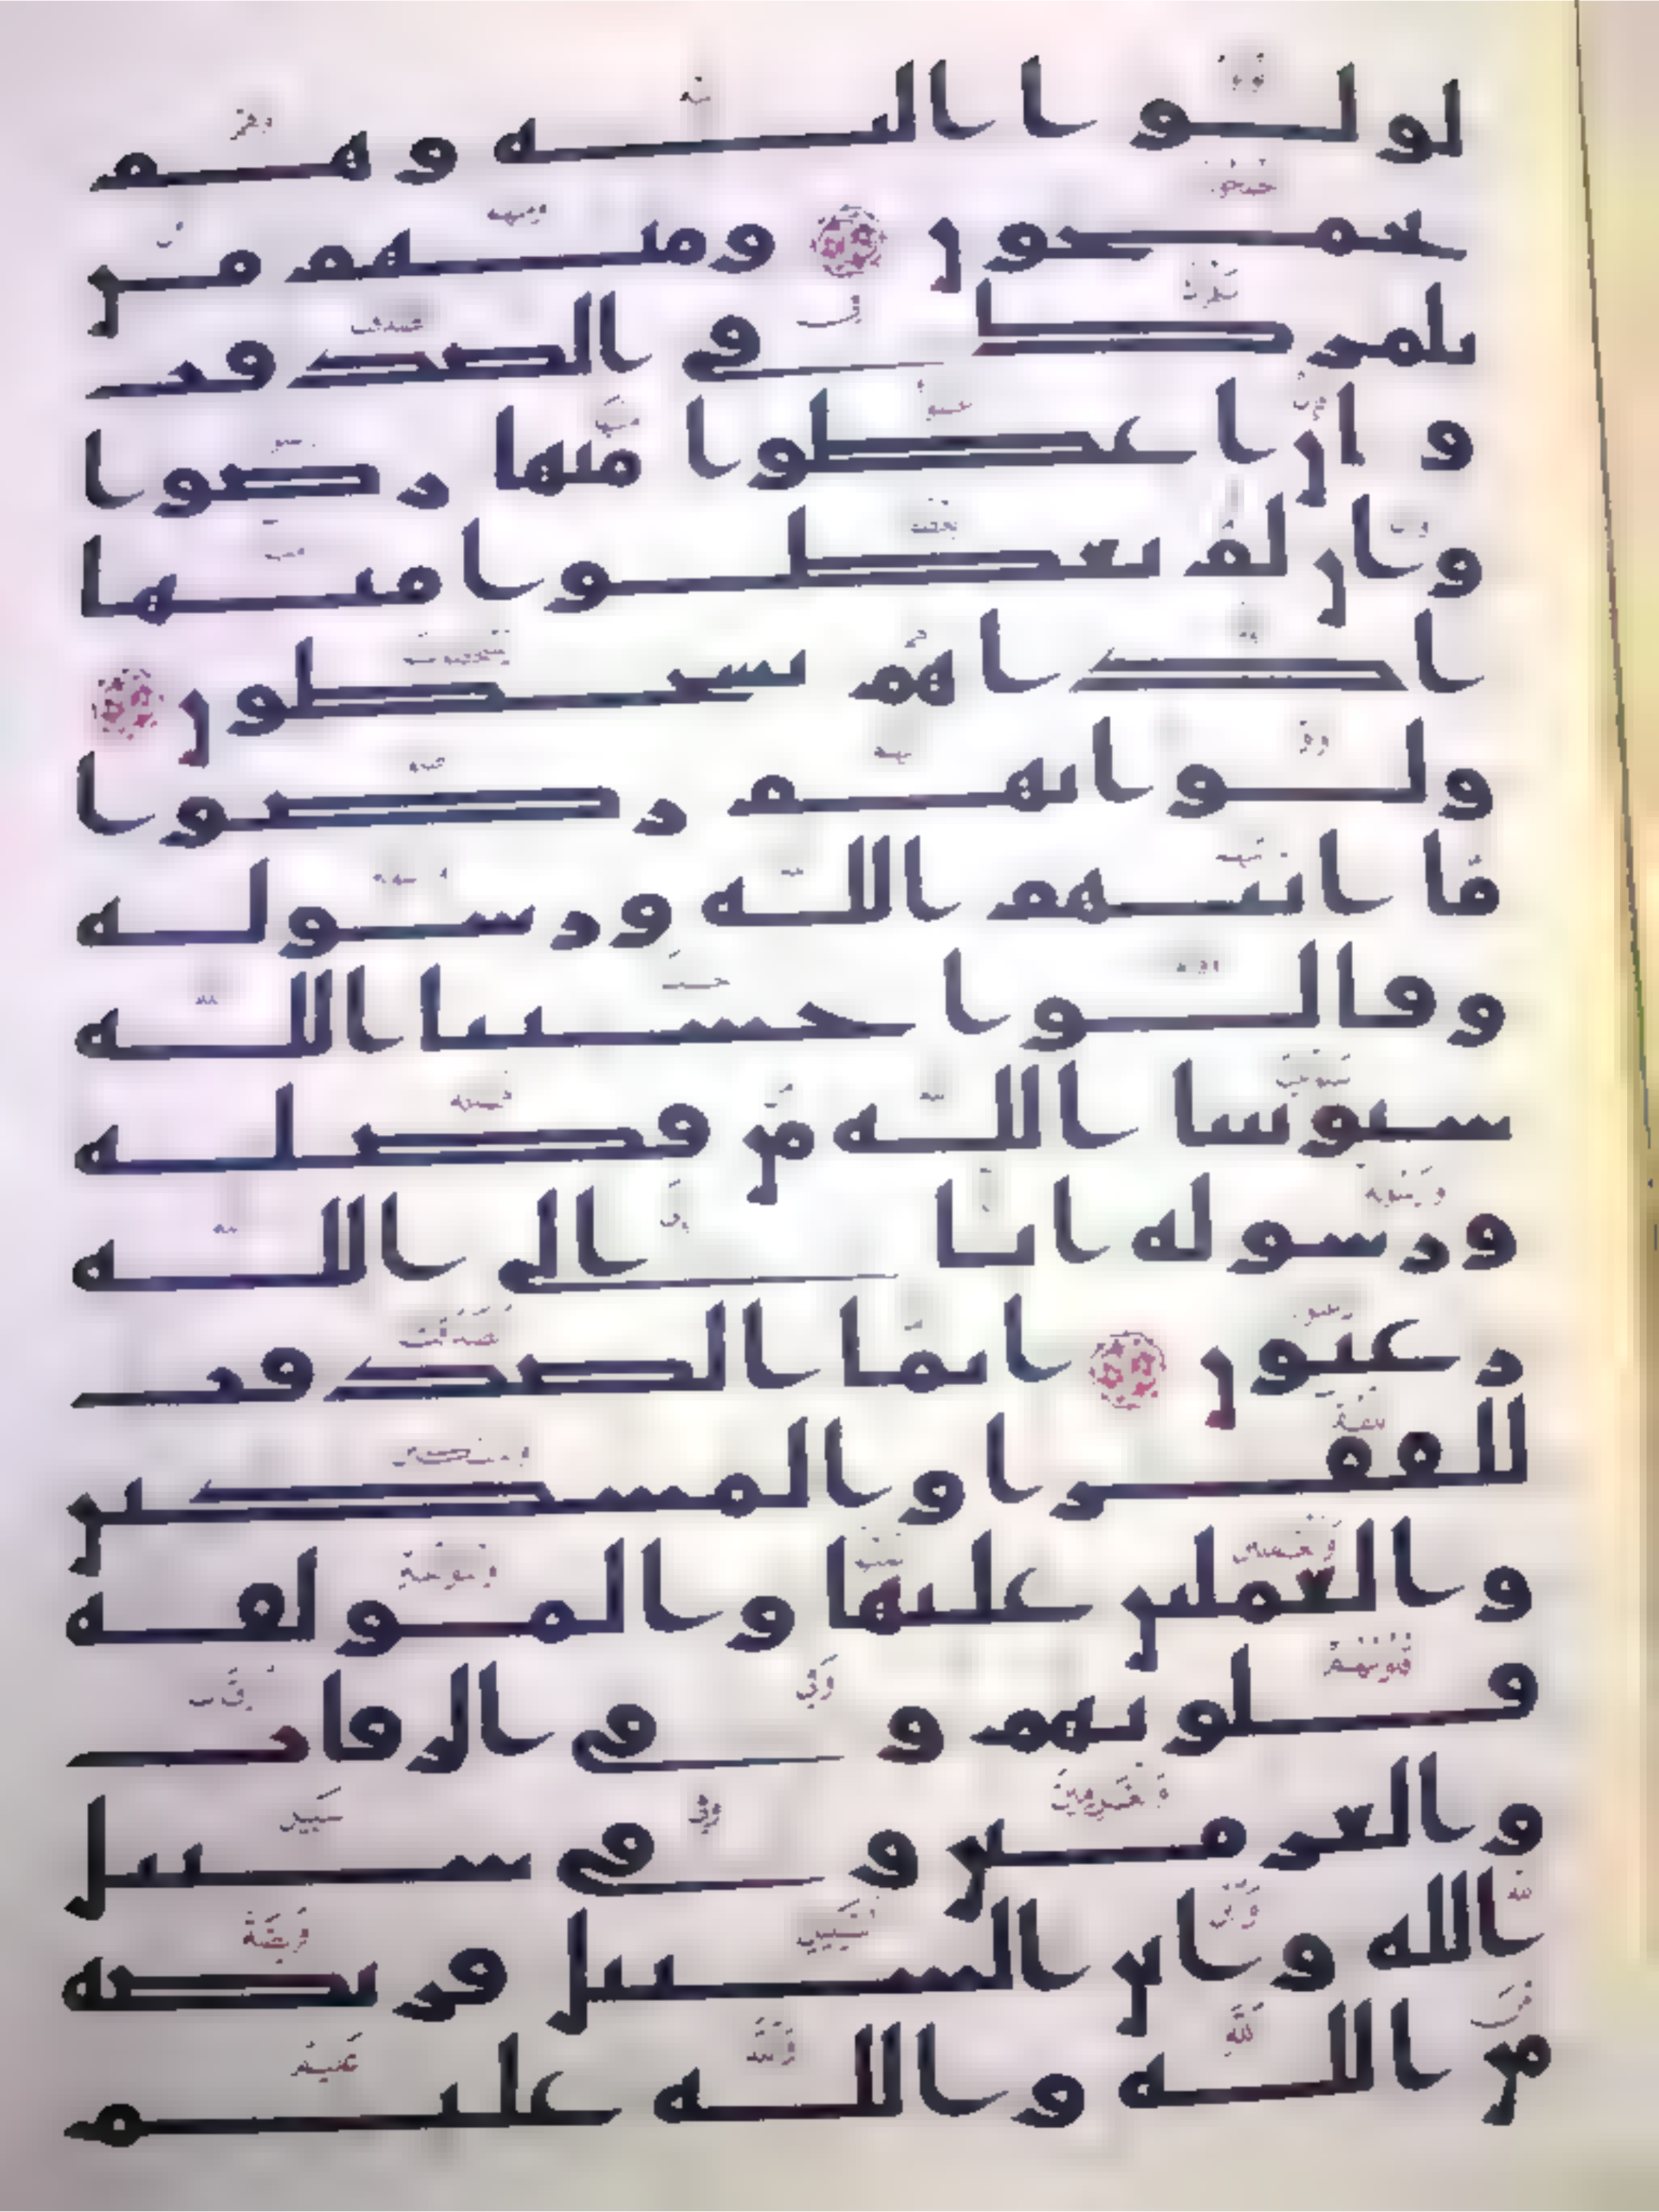 لولوا اليه وهم
يجمحون ومنهم من
يلمزك في الصدقت
وان اعطوا منها رضوا
وان لم يعطوا منها
اذا هم يسخطون
ولو انهم رضوا
ما اتيهم الله ورسوله
وقالوا حسبنا الله
سيوتينا الله من فضله
ورسوله انا الى الله
رغبون انما الصدقت
للفقرا والمسكين
والعملين عليها والمولفة
قلوبهم وفي الرقاب
والغرمين وفي سبيل
الله وابن السبيل فريضة
من الله والله عليم